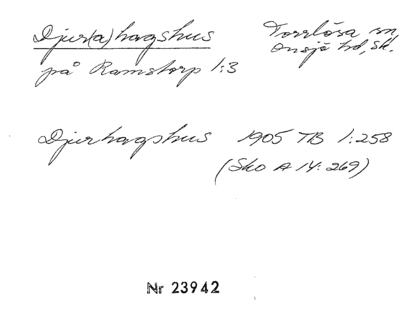 Djur(a)hagshus Torrlösa sn,
på Ramstorp 1:3 Onsjö hd, Sk.
Djurhagshus 1905 TB 1:258
(Sko A 14: 269)
Nr 23942